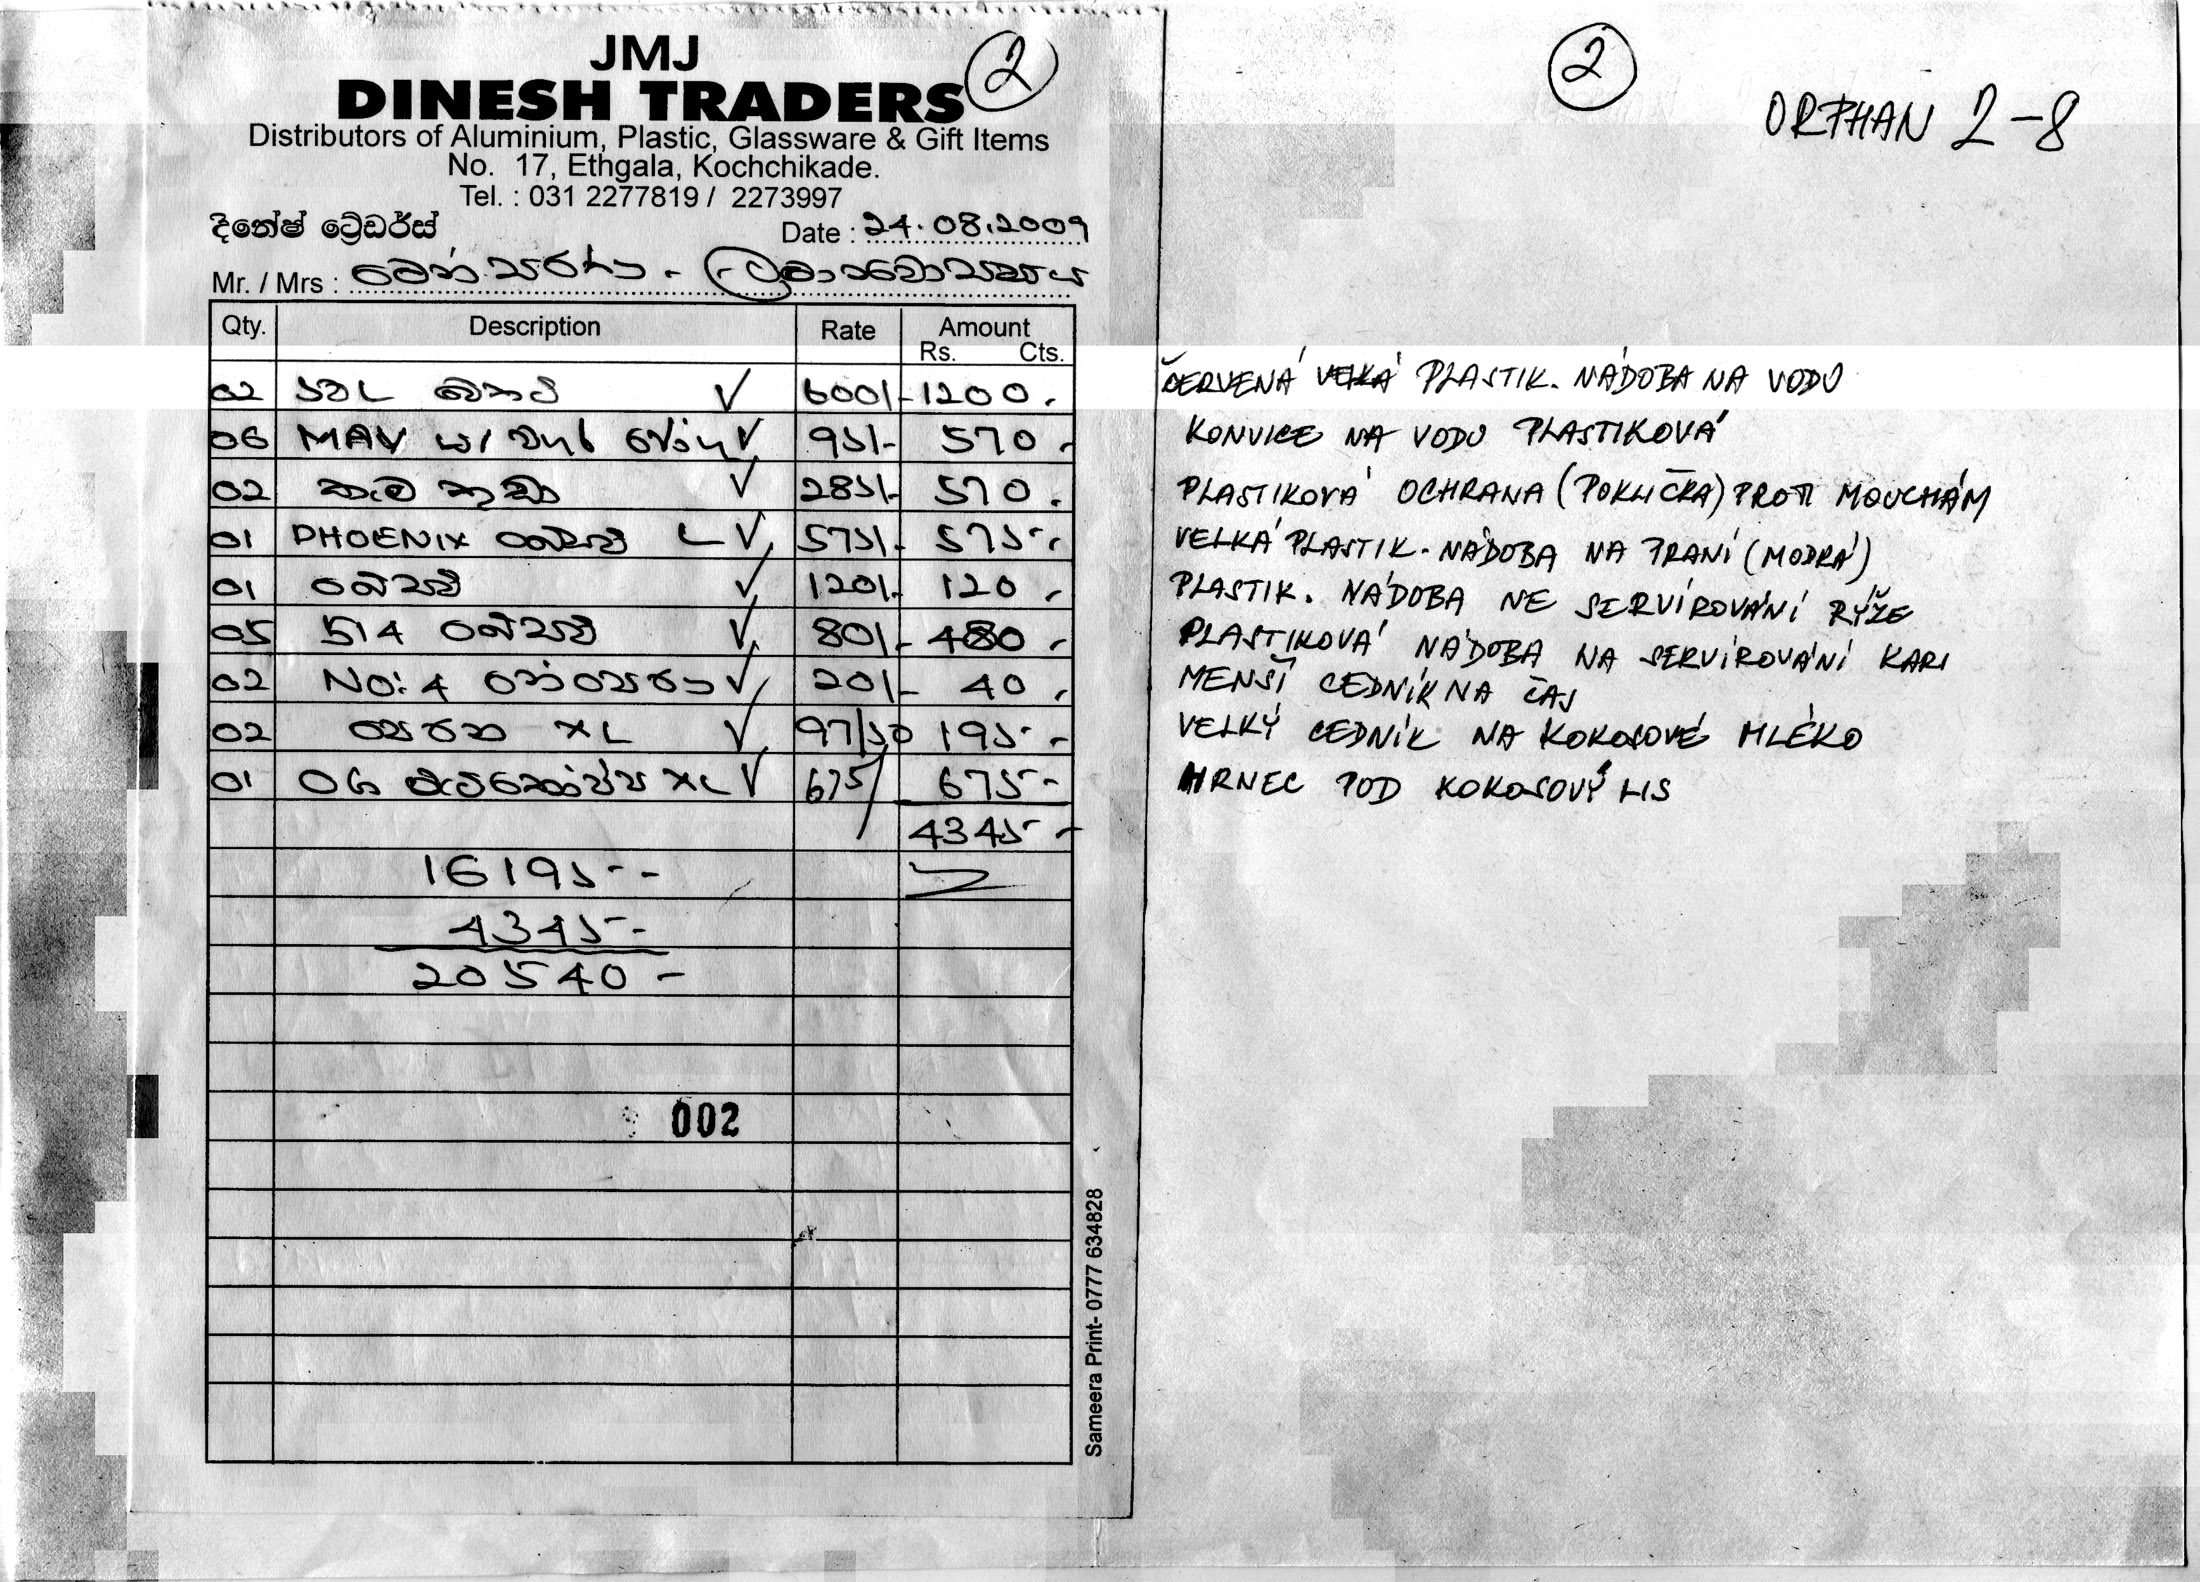 JMJ
2
DINESH TRADERS
Distributors of Aluminium, Plastic, Glassware & Gift Items
No. 17, Ethgala, Kochchikade.
Tel. : 031 2277819 / 2273997
දිනේෂ් ට්‍රේඩර්ස්
Date : 24.08.2009
Mr. / Mrs :
Qty. Description Rate Amount
Rs. Cts.
02 600/- 1200.
06 MAV 95/- 570.
02 285/- 570.
01 PHOENIX L 575/- 575-
01 120/- 120.
05 514 80/- 480.
02 NO: 4 20/- 40.
02 XL 97/50 195-
01 XL 675/ 675-
4345-
16195--
4345-
20540-
002
Sameera Print- 0777 634828
2
ORPHAN 2-8
ČERVENÁ VELKÁ PLASTIK. NÁDOBA NA VODU
KONVICE NA VODU PLASTIKOVÁ
PLASTIKOVÁ OCHRANA (POKLIČKA) PROTI MOUCHÁM
VELKÁ PLASTIK. NÁDOBA NA PRANÍ (MODRÁ)
PLASTIK. NÁDOBA NE SERVÍROVÁNÍ RÝŽE
PLASTIKOVÁ NÁDOBA NA SERVÍROVÁNÍ KARI
MENŠÍ CEDNÍK NA ČAJ
VELKÝ CEDNÍK NA KOKOSOVÉ MLÉKO
HRNEC POD KOKOSOVÝ LIS